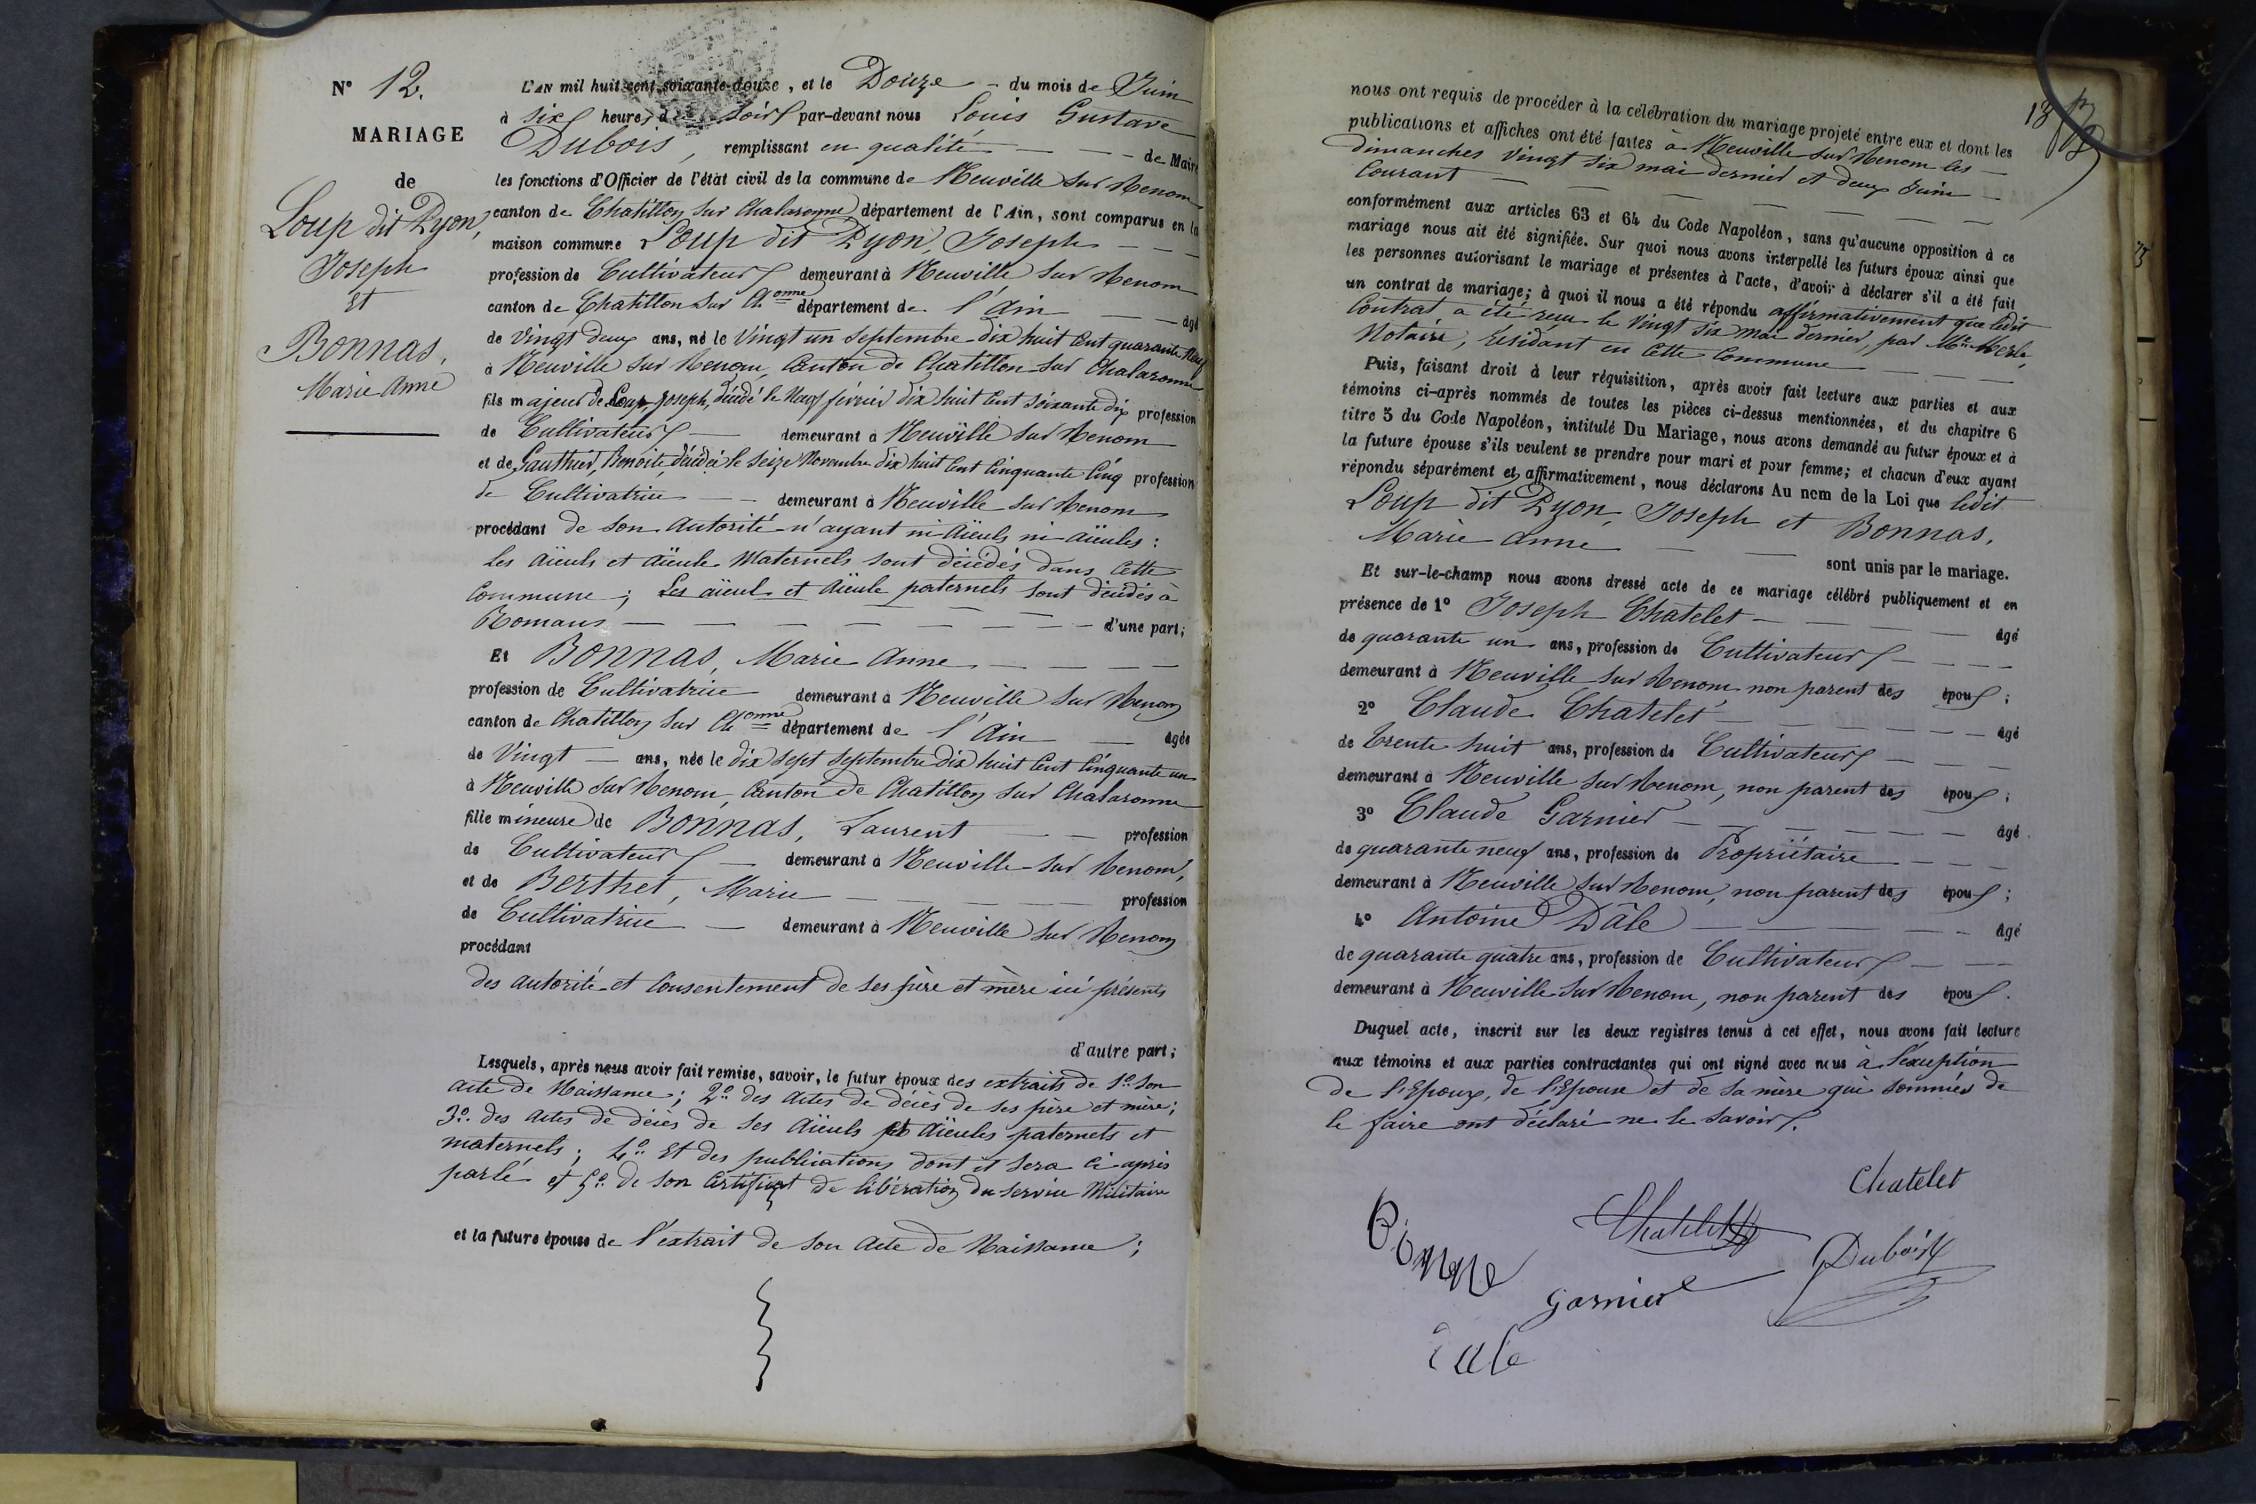 N° 12.
MARIAGE
de
Loup dit Dyon,
Joseph
Et
Bonnas,
Marie Anne
L'AN mil huit cent soixante-douze, et le Douze du mois de Juin
à six heures du soir par-devant nous Louis Gustave
Dubois, remplissant en qualité de Maire
les fonctions d'Officier de l'état civil de la commune de Neuville sur Renom
canton de Chatillon sur Chalaronne département de l'Ain, sont comparus en la
maison commune Loup dit Dyon, Joseph
profession de Cultivateur demeurant à Neuville sur Renom
canton de Chatillon sur Ch.onne département de l'Ain âgé
de Vingt deux ans, né le Vingt un septembre dix huit Cent quarante Neuf
à Neuville sur Renom, Canton de Chatillon sur Chalaronne
fils majeur de Loup Joseph, décédé le Neuf février dix huit Cent soixante dix profession
de Cultivateur demeurant à Neuville sur Renom
et de Gauthier, Benoite, décédée le seize Novembre dix huit Cent Cinquante Cinq profession
de Cultivatrice demeurant à Neuville sur Renom
procédant de son autorité n'ayant ni aïeuls ni aïeules :
les aïeuls et aïeule Maternels sont décédés dans cette
Commune ; Les aïeul et aïeule paternels sont décédés à
Romans d'une part ;
Et Bonnas, Marie Anne
profession de Cultivatrice demeurant à Neuville sur Renom
canton de Chatillon sur Ch.onne département de l'Ain âgée
de Vingt ans, née le dix sept septembre dix huit Cent Cinquante un
à Neuville sur Renom, Canton de Chatillon sur Chalaronne
fille mineure de Bonnas, Laurent profession
de Cultivateur demeurant à Neuville sur Renom,
et de Berthet, Marie profession
de Cultivatrice demeurant à Neuville sur Renom
procédant
des autorité et Consentement de ses père et mère ici présents
d'autre part ;
Lesquels, après nous avoir fait remise, savoir, le futur époux des extraits de 1° son
acte de Naissance ; 2° des actes de décès de ses père et mère ;
3° des actes de décès de ses aïeuls et aïeules paternels et
maternels ; 4° Et des publications dont il sera ci-après
parlé et 5° de son Certificat de libération du service Militaire
et la future épouse de l'extrait de son acte de Naissance ;
13
nous ont requis de procéder à la célébration du mariage projeté entre eux et dont les
publications et affiches ont été faites à Neuville sur Renom les
dimanches Vingt six mai dernier et deux Juin
Courant
conformément aux articles 63 et 64 du Code Napoléon, sans qu'aucune opposition à ce
mariage nous ait été signifiée. Sur quoi nous avons interpellé les futurs époux ainsi que
les personnes autorisant le mariage et présentes à l'acte, d'avoir à déclarer s'il a été fait
un contrat de mariage ; à quoi il nous a été répondu affirmativement que ledit
Contrat a été reçu le Vingt six Mai dernier, par Me Merle,
Notaire, résidant en Cette Commune
Puis, faisant droit à leur réquisition, après avoir fait lecture aux parties et aux
témoins ci-après nommés de toutes les pièces ci-dessus mentionnées, et du chapitre 6
titre 5 du Code Napoléon, intitulé Du Mariage, nous avons demandé au futur époux et à
la future épouse s'ils veulent se prendre pour mari et pour femme ; et chacun d'eux ayant
répondu séparément et affirmativement, nous déclarons Au nom de la Loi que ledit
Loup dit Dyon, Joseph et Bonnas,
Marie Anne
sont unis par le mariage.
Et sur-le-champ nous avons dressé acte de ce mariage célébré publiquement et en
présence de 1° Joseph Chatelet âgé
de quarante un ans, profession de Cultivateur
demeurant à Neuville sur Renom non parent des époux ;
2° Claude Chatelet âgé
de Trente huit ans, profession de Cultivateur
demeurant à Neuville sur Renom, non parent des époux ;
3° Claude Garnier âgé
de quarante neuf ans, profession de Propriétaire
demeurant à Neuville sur Renom, non parent des époux ;
4° Antoine Dâle âgé
de quarante quatre ans, profession de Cultivateur
demeurant à Neuville sur Renom, non parent des époux.
Duquel acte, inscrit sur les deux registres tenus à cet effet, nous avons fait lecture
aux témoins et aux parties contractantes qui ont signé avec nous à l'exception
de l'Epoux, de l'Epouse et de sa mère qui sommés de
le faire ont déclaré ne le savoir.
Chatelet
Chatelet
Dubois
Garnier
Dale